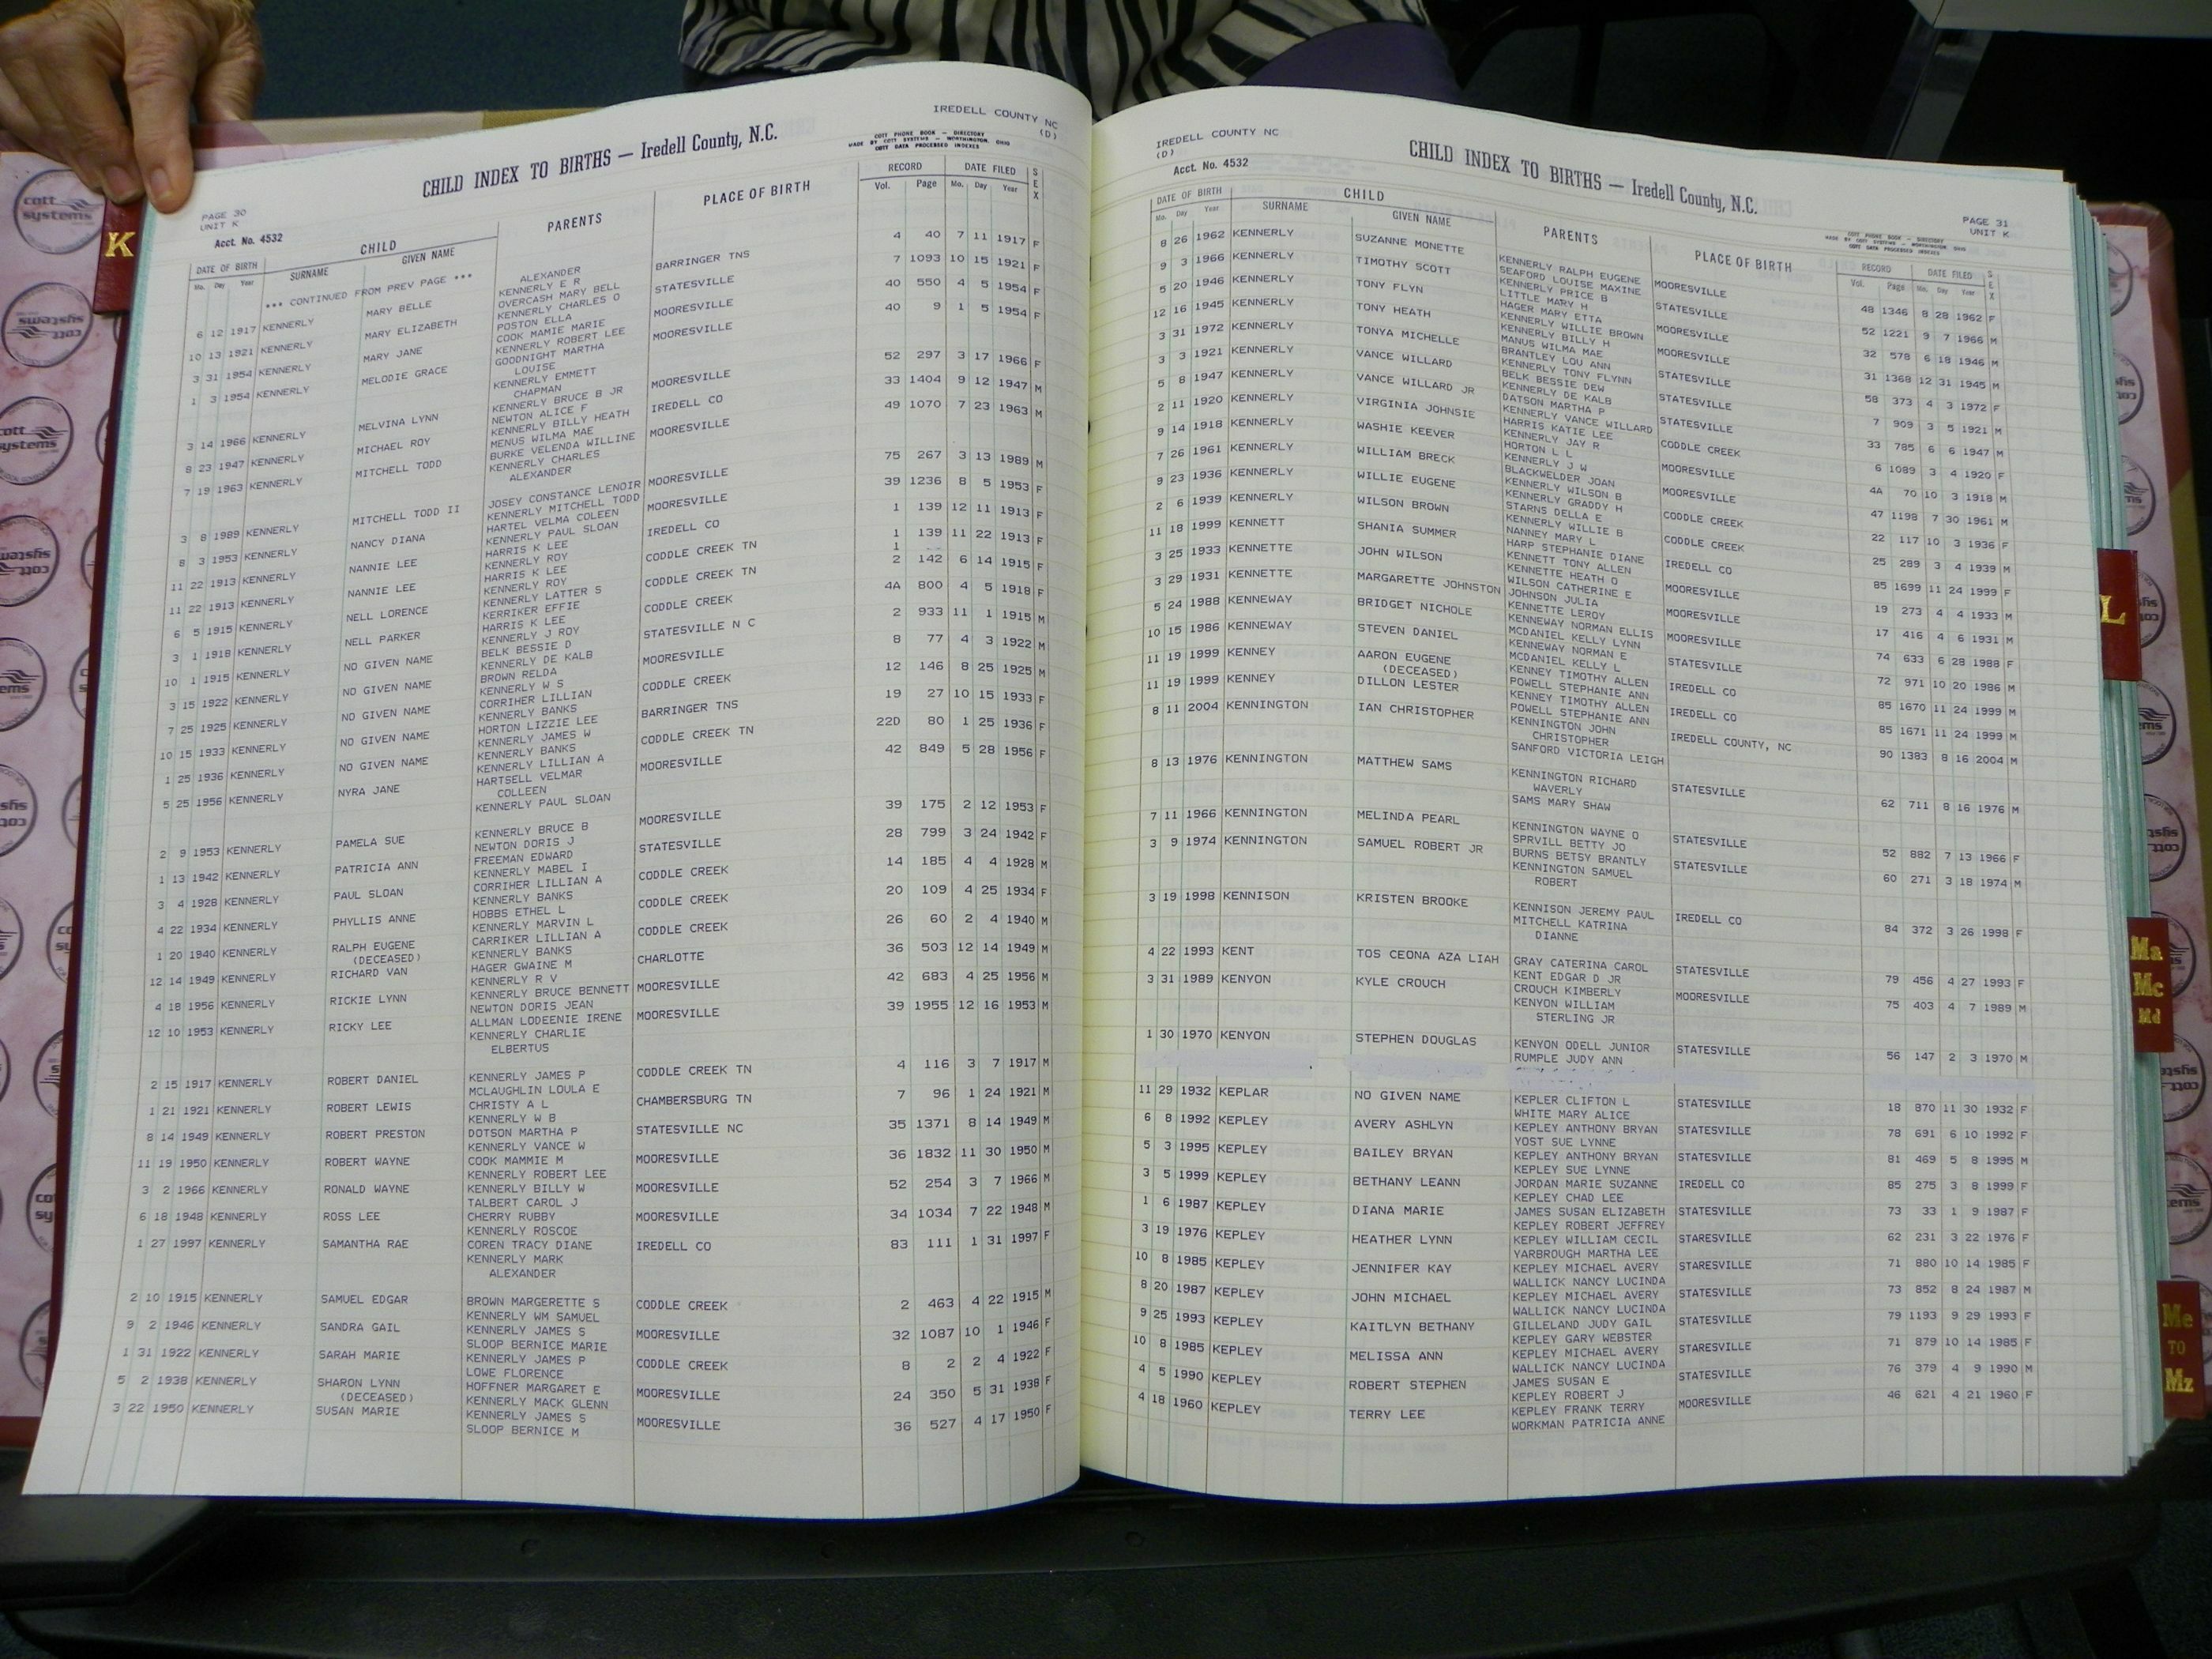 IREDELL COUNTY NC
(D)
CHILD INDEX TO BIRTHS — Iredell County, N.C.
COTT PHONE BOOK — DIRECTORY
MADE BY COTT SYSTEMS — WORTHINGTON, OHIO
COTT DATA PROCESSED INDEXES
PAGE 30
UNIT K
Acct. No. 4532
DATE OF BIRTH CHILD PARENTS PLACE OF BIRTH RECORD DATE FILED SEX
Mo. Day Year SURNAME GIVEN NAME Vol. Page Mo. Day Year
*** CONTINUED FROM PREV PAGE ***
ALEXANDER
6 12 1917 KENNERLY MARY BELLE KENNERLY E R BARRINGER TNS 4 40 7 11 1917 F
OVERCASH MARY BELL
10 13 1921 KENNERLY MARY ELIZABETH KENNERLY CHARLES O STATESVILLE 7 1093 10 15 1921 F
POSTON ELLA
3 31 1954 KENNERLY MARY JANE COOK MAMIE MARIE MOORESVILLE 40 550 4 5 1954 F
KENNERLY ROBERT LEE
1 3 1954 KENNERLY MELODIE GRACE GOODNIGHT MARTHA MOORESVILLE 40 9 1 5 1954 F
LOUISE
KENNERLY EMMETT
CHAPMAN
3 14 1966 KENNERLY MELVINA LYNN KENNERLY BRUCE B JR MOORESVILLE 52 297 3 17 1966 F
NEWTON ALICE F
8 23 1947 KENNERLY MICHAEL ROY KENNERLY BILLY HEATH IREDELL CO 33 1404 9 12 1947 M
MENUS WILMA MAE
7 19 1963 KENNERLY MITCHELL TODD BURKE VELENDA WILLINE MOORESVILLE 49 1070 7 23 1963 M
KENNERLY CHARLES
ALEXANDER
3 8 1989 KENNERLY MITCHELL TODD II JOSEY CONSTANCE LENOIR MOORESVILLE 75 267 3 13 1989 M
KENNERLY MITCHELL TODD
8 3 1953 KENNERLY NANCY DIANA HARTEL VELMA COLEEN MOORESVILLE 39 1236 8 5 1953 F
KENNERLY PAUL SLOAN
11 22 1913 KENNERLY NANNIE LEE HARRIS K LEE IREDELL CO 1 139 12 11 1913 F
KENNERLY ROY
11 22 1913 KENNERLY NANNIE LEE HARRIS K LEE CODDLE CREEK TN 1 139 11 22 1913 F
KENNERLY ROY 1
6 5 1915 KENNERLY NELL LORENCE KENNERLY LATTER S CODDLE CREEK TN 2 142 6 14 1915 F
KERRIKER EFFIE
3 1 1918 KENNERLY NELL PARKER HARRIS K LEE CODDLE CREEK 4A 800 4 5 1918 F
KENNERLY J ROY
10 1 1915 KENNERLY NO GIVEN NAME BELK BESSIE D STATESVILLE N C 2 933 11 1 1915 M
KENNERLY DE KALB
3 15 1922 KENNERLY NO GIVEN NAME BROWN RELDA MOORESVILLE 8 77 4 3 1922 M
KENNERLY W S
7 25 1925 KENNERLY NO GIVEN NAME CORRIHER LILLIAN CODDLE CREEK 12 146 8 25 1925 M
KENNERLY BANKS
10 15 1933 KENNERLY NO GIVEN NAME HORTON LIZZIE LEE BARRINGER TNS 19 27 10 15 1933 F
KENNERLY JAMES W
1 25 1936 KENNERLY NO GIVEN NAME KENNERLY BANKS CODDLE CREEK TN 22D 80 1 25 1936 F
KENNERLY LILLIAN A
5 25 1956 KENNERLY NYRA JANE HARTSELL VELMAR MOORESVILLE 42 849 5 28 1956 F
COLLEEN
KENNERLY PAUL SLOAN
2 9 1953 KENNERLY PAMELA SUE KENNERLY BRUCE B MOORESVILLE 39 175 2 12 1953 F
NEWTON DORIS J
1 13 1942 KENNERLY PATRICIA ANN FREEMAN EDWARD STATESVILLE 28 799 3 24 1942 F
KENNERLY MABEL I
3 4 1928 KENNERLY PAUL SLOAN CORRIHER LILLIAN A CODDLE CREEK 14 185 4 4 1928 M
KENNERLY BANKS
4 22 1934 KENNERLY PHYLLIS ANNE HOBBS ETHEL L CODDLE CREEK 20 109 4 25 1934 F
KENNERLY MARVIN L
1 20 1940 KENNERLY RALPH EUGENE CARRIKER LILLIAN A CODDLE CREEK 26 60 2 4 1940 M
(DECEASED) KENNERLY BANKS
12 14 1949 KENNERLY RICHARD VAN HAGER GWAINE M CHARLOTTE 36 503 12 14 1949 M
KENNERLY R V
4 18 1956 KENNERLY RICKIE LYNN KENNERLY BRUCE BENNETT MOORESVILLE 42 683 4 25 1956 M
NEWTON DORIS JEAN
12 10 1953 KENNERLY RICKY LEE ALLMAN LODEENIE IRENE MOORESVILLE 39 1955 12 16 1953 M
KENNERLY CHARLIE
ELBERTUS
2 15 1917 KENNERLY ROBERT DANIEL KENNERLY JAMES P CODDLE CREEK TN 4 116 3 7 1917 M
MCLAUGHLIN LOULA E
1 21 1921 KENNERLY ROBERT LEWIS CHRISTY A L CHAMBERSBURG TN 7 96 1 24 1921 M
KENNERLY W B
8 14 1949 KENNERLY ROBERT PRESTON DOTSON MARTHA P STATESVILLE NC 35 1371 8 14 1949 M
KENNERLY VANCE W
11 19 1950 KENNERLY ROBERT WAYNE COOK MAMMIE M MOORESVILLE 36 1832 11 30 1950 M
KENNERLY ROBERT LEE
3 2 1966 KENNERLY RONALD WAYNE KENNERLY BILLY W MOORESVILLE 52 254 3 7 1966 M
TALBERT CAROL J
6 18 1948 KENNERLY ROSS LEE CHERRY RUBBY MOORESVILLE 34 1034 7 22 1948 M
KENNERLY ROSCOE
1 27 1997 KENNERLY SAMANTHA RAE COREN TRACY DIANE IREDELL CO 83 111 1 31 1997 F
KENNERLY MARK
ALEXANDER
2 10 1915 KENNERLY SAMUEL EDGAR BROWN MARGERETTE S CODDLE CREEK 2 463 4 22 1915 M
KENNERLY WM SAMUEL
9 2 1946 KENNERLY SANDRA GAIL KENNERLY JAMES S MOORESVILLE 32 1087 10 1 1946 F
SLOOP BERNICE MARIE
1 31 1922 KENNERLY SARAH MARIE KENNERLY JAMES P CODDLE CREEK 8 2 2 4 1922 F
LOWE FLORENCE
5 2 1938 KENNERLY SHARON LYNN HOFFNER MARGARET E MOORESVILLE 24 350 5 31 1938 F
(DECEASED) KENNERLY MACK GLENN
3 22 1950 KENNERLY SUSAN MARIE KENNERLY JAMES S MOORESVILLE 36 527 4 17 1950 F
SLOOP BERNICE M
IREDELL COUNTY NC
(D)
Acct. No. 4532
CHILD INDEX TO BIRTHS — Iredell County, N.C.
PAGE 31
UNIT K
COTT PHONE BOOK — DIRECTORY
MADE BY COTT SYSTEMS — WORTHINGTON, OHIO
COTT DATA PROCESSED INDEXES
DATE OF BIRTH CHILD PARENTS PLACE OF BIRTH RECORD DATE FILED SEX
Mo. Day Year SURNAME GIVEN NAME Vol. Page Mo. Day Year
8 26 1962 KENNERLY SUZANNE MONETTE KENNERLY RALPH EUGENE MOORESVILLE 48 1346 8 28 1962 F
SEAFORD LOUISE MAXINE
9 3 1966 KENNERLY TIMOTHY SCOTT KENNERLY PRICE B STATESVILLE 52 1221 9 7 1966 M
LITTLE MARY H
5 20 1946 KENNERLY TONY FLYN HAGER MARY ETTA MOORESVILLE 32 578 6 18 1946 M
KENNERLY WILLIE BROWN
12 16 1945 KENNERLY TONY HEATH KENNERLY BILLY H MOORESVILLE 31 1368 12 31 1945 M
MANUS WILMA MAE
3 31 1972 KENNERLY TONYA MICHELLE BRANTLEY LOU ANN STATESVILLE 58 373 4 3 1972 F
KENNERLY TONY FLYNN
3 3 1921 KENNERLY VANCE WILLARD BELK BESSIE DEW STATESVILLE 7 909 3 5 1921 M
KENNERLY DE KALB
5 8 1947 KENNERLY VANCE WILLARD JR DATSON MARTHA P STATESVILLE 33 785 6 6 1947 M
KENNERLY VANCE WILLARD
2 11 1920 KENNERLY VIRGINIA JOHNSIE HARRIS KATIE LEE CODDLE CREEK 6 1089 3 4 1920 F
KENNERLY JAY R
9 14 1918 KENNERLY WASHIE KEEVER HORTON L L MOORESVILLE 4A 70 10 3 1918 M
KENNERLY J W
7 26 1961 KENNERLY WILLIAM BRECK BLACKWELDER JOAN MOORESVILLE 47 1198 7 30 1961 M
KENNERLY WILSON B
9 23 1936 KENNERLY WILLIE EUGENE KENNERLY GRADDY H CODDLE CREEK 22 117 10 3 1936 F
STARNS DELLA E
2 6 1939 KENNERLY WILSON BROWN KENNERLY WILLIE B CODDLE CREEK 25 289 3 4 1939 M
NANNEY MARY L
11 18 1999 KENNETT SHANIA SUMMER HARP STEPHANIE DIANE IREDELL CO 85 1699 11 24 1999 F
KENNETT TONY ALLEN
3 25 1933 KENNETTE JOHN WILSON KENNETTE HEATH O MOORESVILLE 19 273 4 4 1933 M
WILSON CATHERINE E
3 29 1931 KENNETTE MARGARETTE JOHNSTON JOHNSON JULIA MOORESVILLE 17 416 4 6 1931 M
KENNETTE LEROY
5 24 1988 KENNEWAY BRIDGET NICHOLE KENNEWAY NORMAN ELLIS MOORESVILLE 74 633 6 28 1988 F
MCDANIEL KELLY LYNN
10 15 1986 KENNEWAY STEVEN DANIEL KENNEWAY NORMAN E STATESVILLE 72 971 10 20 1986 M
MCDANIEL KELLY L
11 19 1999 KENNEY AARON EUGENE KENNEY TIMOTHY ALLEN IREDELL CO 85 1670 11 24 1999 M
(DECEASED) POWELL STEPHANIE ANN
11 19 1999 KENNEY DILLON LESTER KENNEY TIMOTHY ALLEN IREDELL CO 85 1671 11 24 1999 M
POWELL STEPHANIE ANN
8 11 2004 KENNINGTON IAN CHRISTOPHER KENNINGTON JOHN IREDELL COUNTY, NC 90 1383 8 16 2004 M
CHRISTOPHER
SANFORD VICTORIA LEIGH
8 13 1976 KENNINGTON MATTHEW SAMS KENNINGTON RICHARD STATESVILLE 62 711 8 16 1976 M
WAVERLY
SAMS MARY SHAW
7 11 1966 KENNINGTON MELINDA PEARL KENNINGTON WAYNE O STATESVILLE 52 882 7 13 1966 F
SPRVILL BETTY JO
3 9 1974 KENNINGTON SAMUEL ROBERT JR BURNS BETSY BRANTLY STATESVILLE 60 271 3 18 1974 M
KENNINGTON SAMUEL
ROBERT
3 19 1998 KENNISON KRISTEN BROOKE KENNISON JEREMY PAUL IREDELL CO 84 372 3 26 1998 F
MITCHELL KATRINA
DIANNE
4 22 1993 KENT TOS CEONA AZA LIAH GRAY CATERINA CAROL STATESVILLE 79 456 4 27 1993 F
KENT EDGAR D JR
3 31 1989 KENYON KYLE CROUCH CROUCH KIMBERLY MOORESVILLE 75 403 4 7 1989 M
KENYON WILLIAM
STERLING JR
1 30 1970 KENYON STEPHEN DOUGLAS KENYON ODELL JUNIOR STATESVILLE 56 147 2 3 1970 M
RUMPLE JUDY ANN
11 29 1932 KEPLAR NO GIVEN NAME KEPLER CLIFTON L STATESVILLE 18 870 11 30 1932 F
WHITE MARY ALICE
6 8 1992 KEPLEY AVERY ASHLYN KEPLEY ANTHONY BRYAN STATESVILLE 78 691 6 10 1992 F
YOST SUE LYNNE
5 3 1995 KEPLEY BAILEY BRYAN KEPLEY ANTHONY BRYAN STATESVILLE 81 469 5 8 1995 M
KEPLEY SUE LYNNE
3 5 1999 KEPLEY BETHANY LEANN JORDAN MARIE SUZANNE IREDELL CO 85 275 3 8 1999 F
KEPLEY CHAD LEE
1 6 1987 KEPLEY DIANA MARIE JAMES SUSAN ELIZABETH STATESVILLE 73 33 1 9 1987 F
KEPLEY ROBERT JEFFREY
3 19 1976 KEPLEY HEATHER LYNN KEPLEY WILLIAM CECIL STARESVILLE 62 231 3 22 1976 F
YARBROUGH MARTHA LEE
10 8 1985 KEPLEY JENNIFER KAY KEPLEY MICHAEL AVERY STARESVILLE 71 880 10 14 1985 F
WALLICK NANCY LUCINDA
8 20 1987 KEPLEY JOHN MICHAEL KEPLEY MICHAEL AVERY STATESVILLE 73 852 8 24 1987 M
WALLICK NANCY LUCINDA
9 25 1993 KEPLEY KAITLYN BETHANY GILLELAND JUDY GAIL STATESVILLE 79 1193 9 29 1993 F
KEPLEY GARY WEBSTER
10 8 1985 KEPLEY MELISSA ANN KEPLEY MICHAEL AVERY STARESVILLE 71 879 10 14 1985 F
WALLICK NANCY LUCINDA
4 5 1990 KEPLEY ROBERT STEPHEN JAMES SUSAN E STATESVILLE 76 379 4 9 1990 M
KEPLEY ROBERT J
4 18 1960 KEPLEY TERRY LEE KEPLEY FRANK TERRY MOORESVILLE 46 621 4 21 1960 F
WORKMAN PATRICIA ANNE
K
L
Ma
Mc
Md
Me
TO
Mz
cott
systems